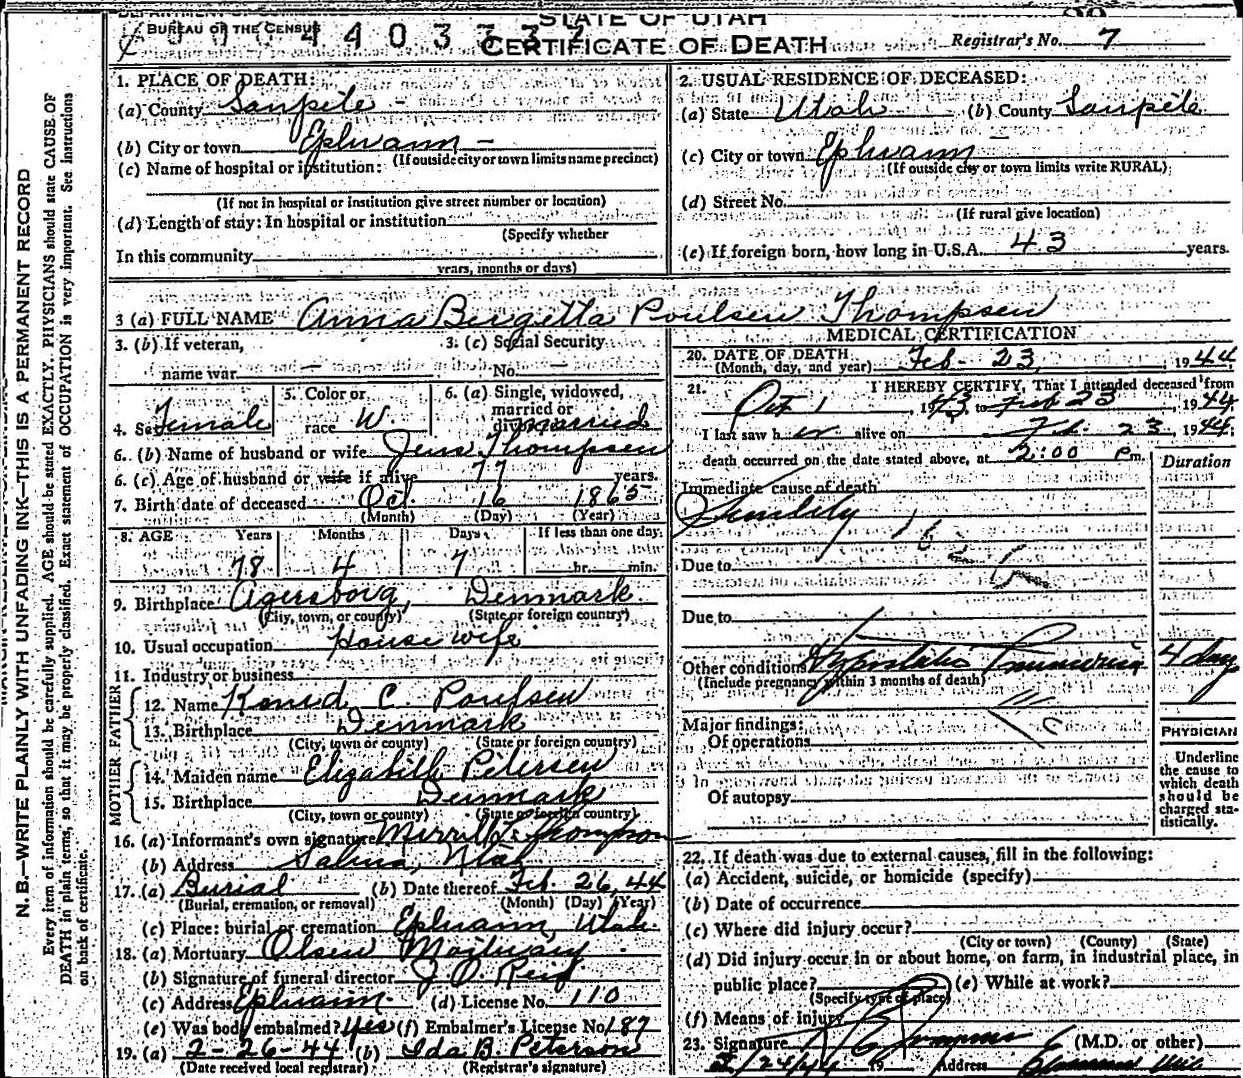 STATE OF UTAH
BUREAU OF THE CENSUS
CERTIFICATE OF DEATH
Registrar's No. 7
N. B.—WRITE PLAINLY WITH UNFADING INK—THIS IS A PERMANENT RECORD
Every item of information should be carefully supplied. AGE should be stated EXACTLY. PHYSICIANS should state CAUSE OF
DEATH in plain terms, so that it may be properly classified. Exact statement of OCCUPATION is very important. See instructions
on back of certificate.
1. PLACE OF DEATH:
(a) County Sanpete
(b) City or town Ephraim
(If outside city or town limits name precinct)
(c) Name of hospital or institution:
(If not in hospital or institution give street number or location)
(d) Length of stay: In hospital or institution
(Specify whether
In this community
years, months or days)
2. USUAL RESIDENCE OF DECEASED:
(a) State Utah (b) County Sanpete
(c) City or town Ephraim
(If outside city or town limits write RURAL)
(d) Street No.
(If rural give location)
(e) If foreign born, how long in U.S.A. 43 years.
3 (a) FULL NAME Anna Bergetta Poulsen Thompsen
3. (b) If veteran,
name war
3. (c) Social Security
No.
4. Sex Female
5. Color or
race W
6. (a) Single, widowed,
married or
divorced Married
6. (b) Name of husband or wife Jens Thompsen
6. (c) Age of husband or wife if alive 77 years.
7. Birth date of deceased Oct. 16 1865
(Month) (Day) (Year)
8. AGE Years Months Days If less than one day
78 4 7 hr. min.
9. Birthplace Agersborg, Denmark.
(City, town, or county) (State or foreign country)
10. Usual occupation House wife
11. Industry or business
FATHER
12. Name C. Poulsen
13. Birthplace Denmark
(City, town or county) (State or foreign country)
MOTHER
14. Maiden name Elizabeth Petersen
15. Birthplace Denmark
(City, town or county) (State or foreign country)
16. (a) Informant's own signature Merrill Thompson
(b) Address Salina, Utah
17. (a) Burial (b) Date thereof Feb. 26, 44
(Burial, cremation, or removal) (Month) (Day) (Year)
(c) Place: burial or cremation Ephraim, Utah.
18. (a) Mortuary Olsen Mortuary
(b) Signature of funeral director
(c) Address Ephraim (d) License No. 110
(e) Was body embalmed? Yes (f) Embalmer's License No. 187
19. (a) 2-26-44 (b) Ida B. Peterson
(Date received local registrar) (Registrar's signature)
MEDICAL CERTIFICATION
20. DATE OF DEATH
(Month, day, and year) Feb. 23, 1944
21. I HEREBY CERTIFY, That I attended deceased from
Oct 1, 1943, to Feb 23, 1944
I last saw her alive on Feb. 23, 1944;
death occurred on the date stated above, at 2:00 P.m.
Duration
Immediate cause of death
Senility
Due to
Due to
Other conditions Hypostatic Pneumonia 4 days
(Include pregnancy within 3 months of death)
Major findings:
Of operations
Of autopsy
PHYSICIAN
Underline
the cause to
which death
should be
charged sta-
tistically.
22. If death was due to external causes, fill in the following:
(a) Accident, suicide, or homicide (specify)
(b) Date of occurrence
(c) Where did injury occur?
(City or town) (County) (State)
(d) Did injury occur in or about home, on farm, in industrial place, in
public place? (e) While at work?
(Specify type of place)
(f) Means of injury
23. Signature (M.D. or other)
19 Address